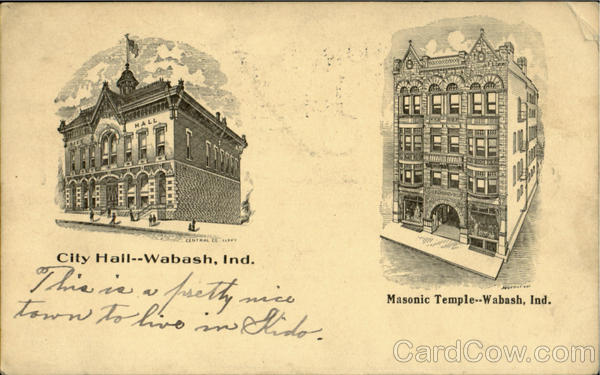 HALL
CENTRAL CO.
City Hall--Wabash, Ind.
Masonic Temple--Wabash, Ind.
This is a pretty nice
town to live in Kido.
CardCow.com